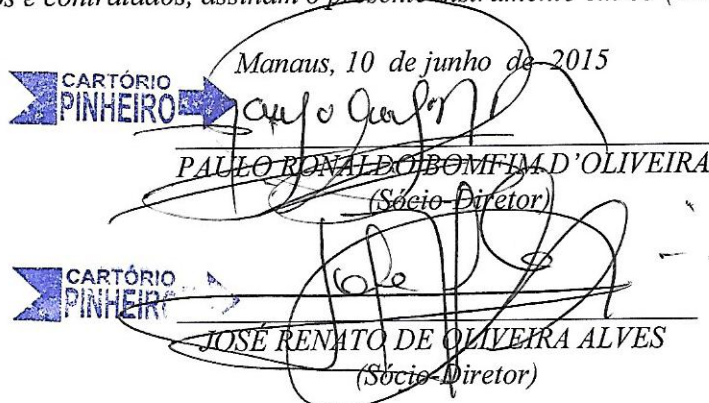 contratados, assinam o presente
Manaus, 10 de junho de 2015
CARTÓRIO
PINHEIRO
PAULO RONALDO BOMFIM D'OLIVEIRA
(Sócio-Diretor)
CARTÓRIO
PINHEIRO
JOSÉ RENATO DE OLIVEIRA ALVES
(Sócio-Diretor)